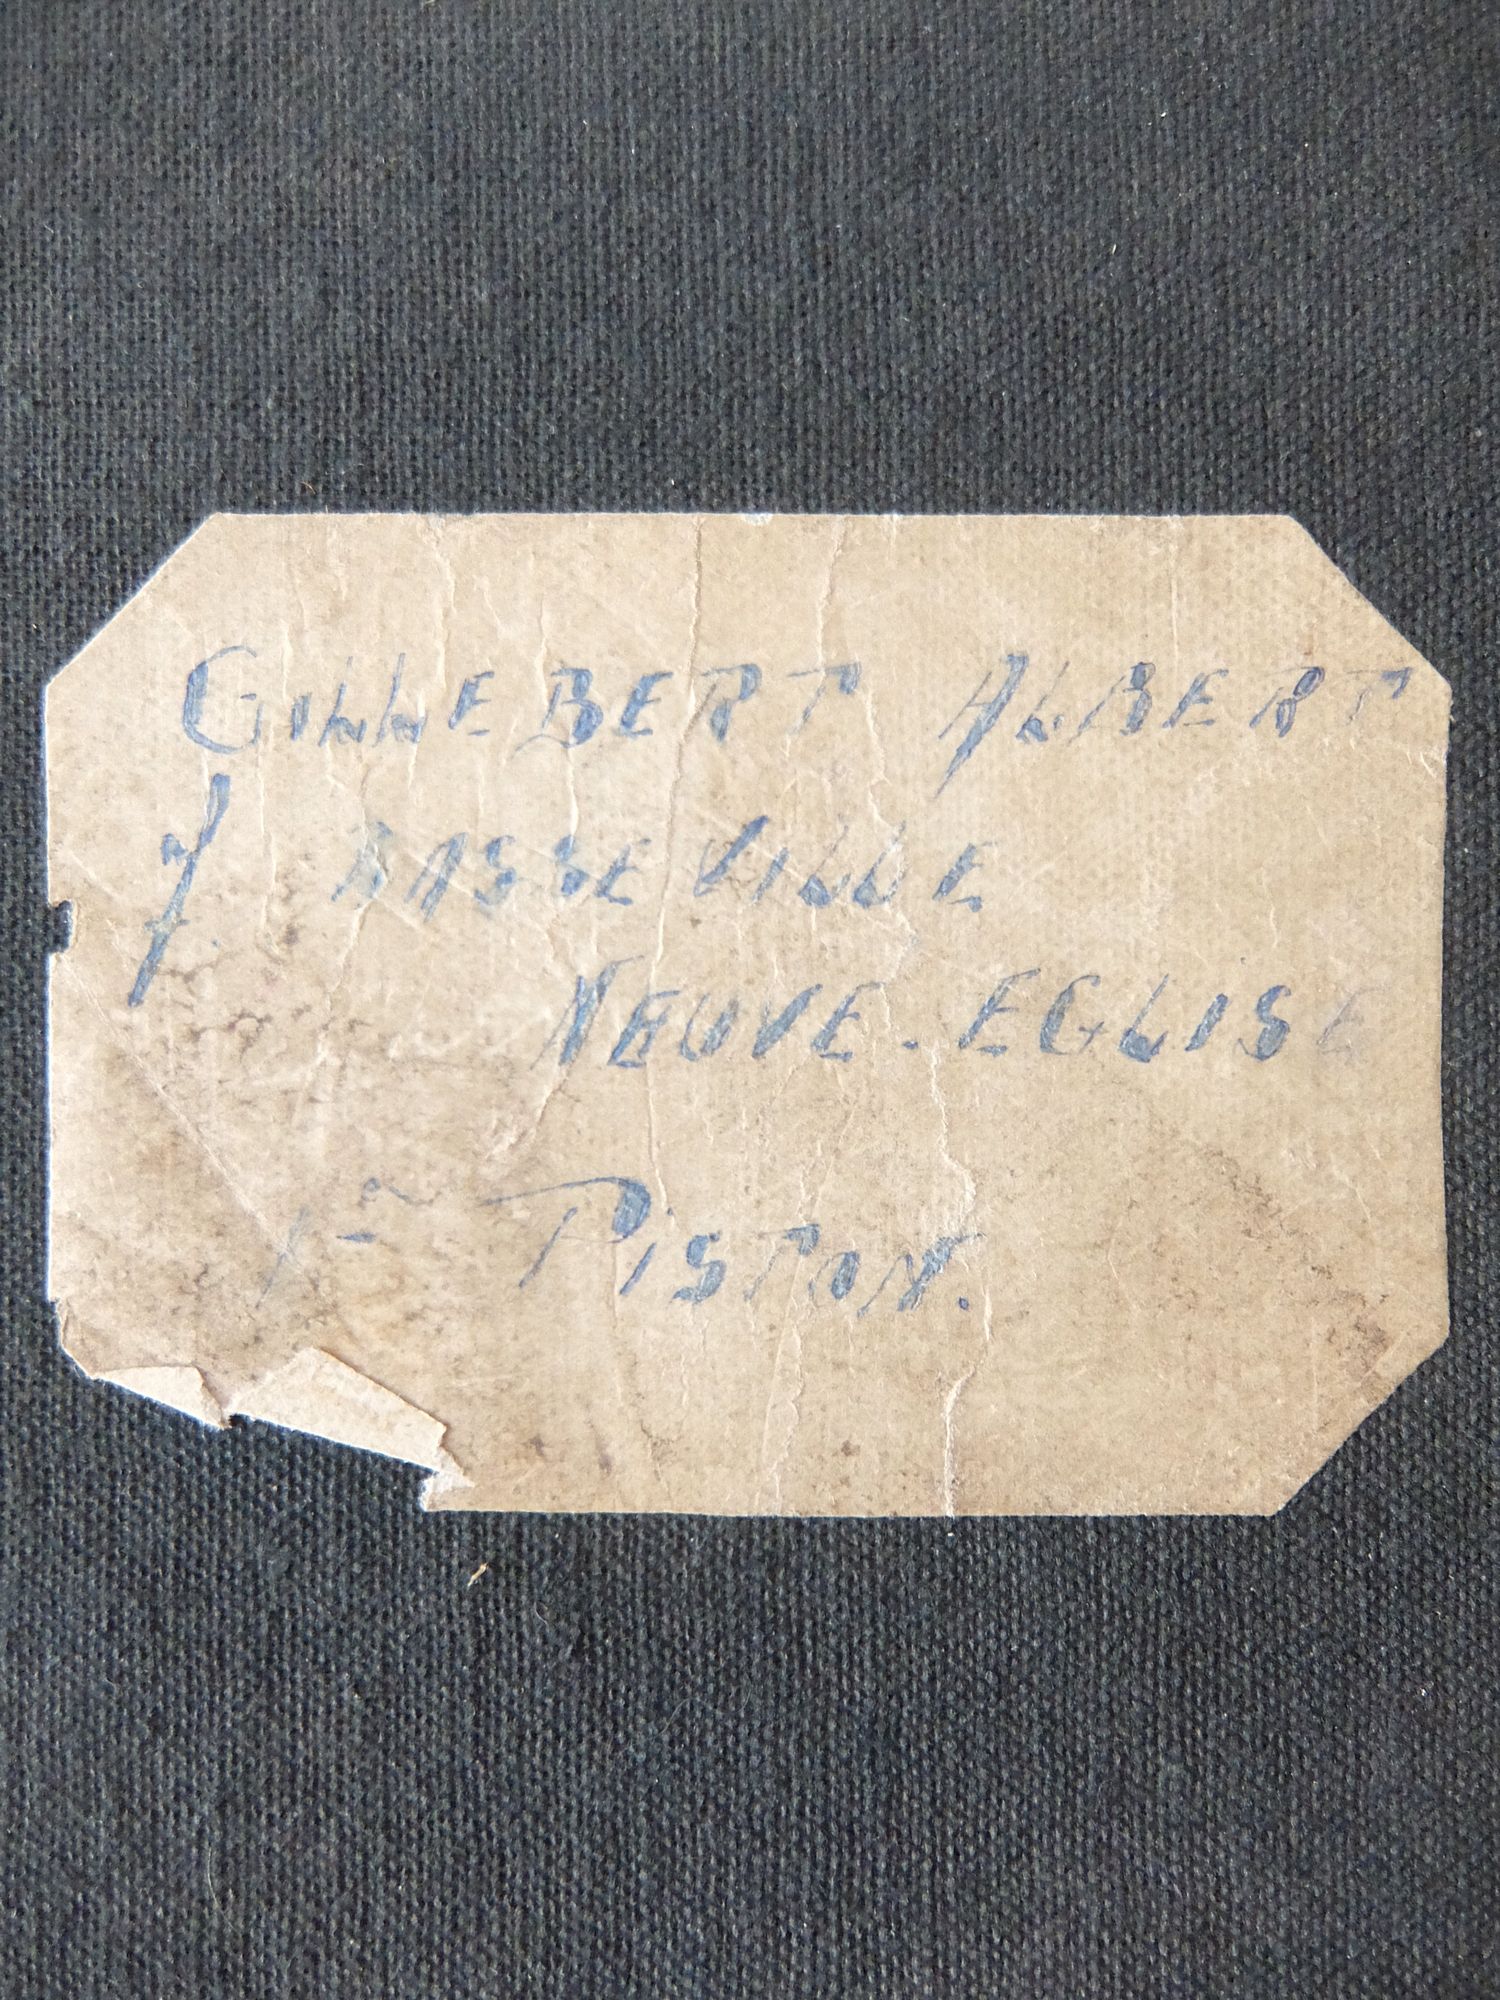 GILLEBERT ALBERT
BASSEVILLE
NEUVE-EGLISE
PISTON.